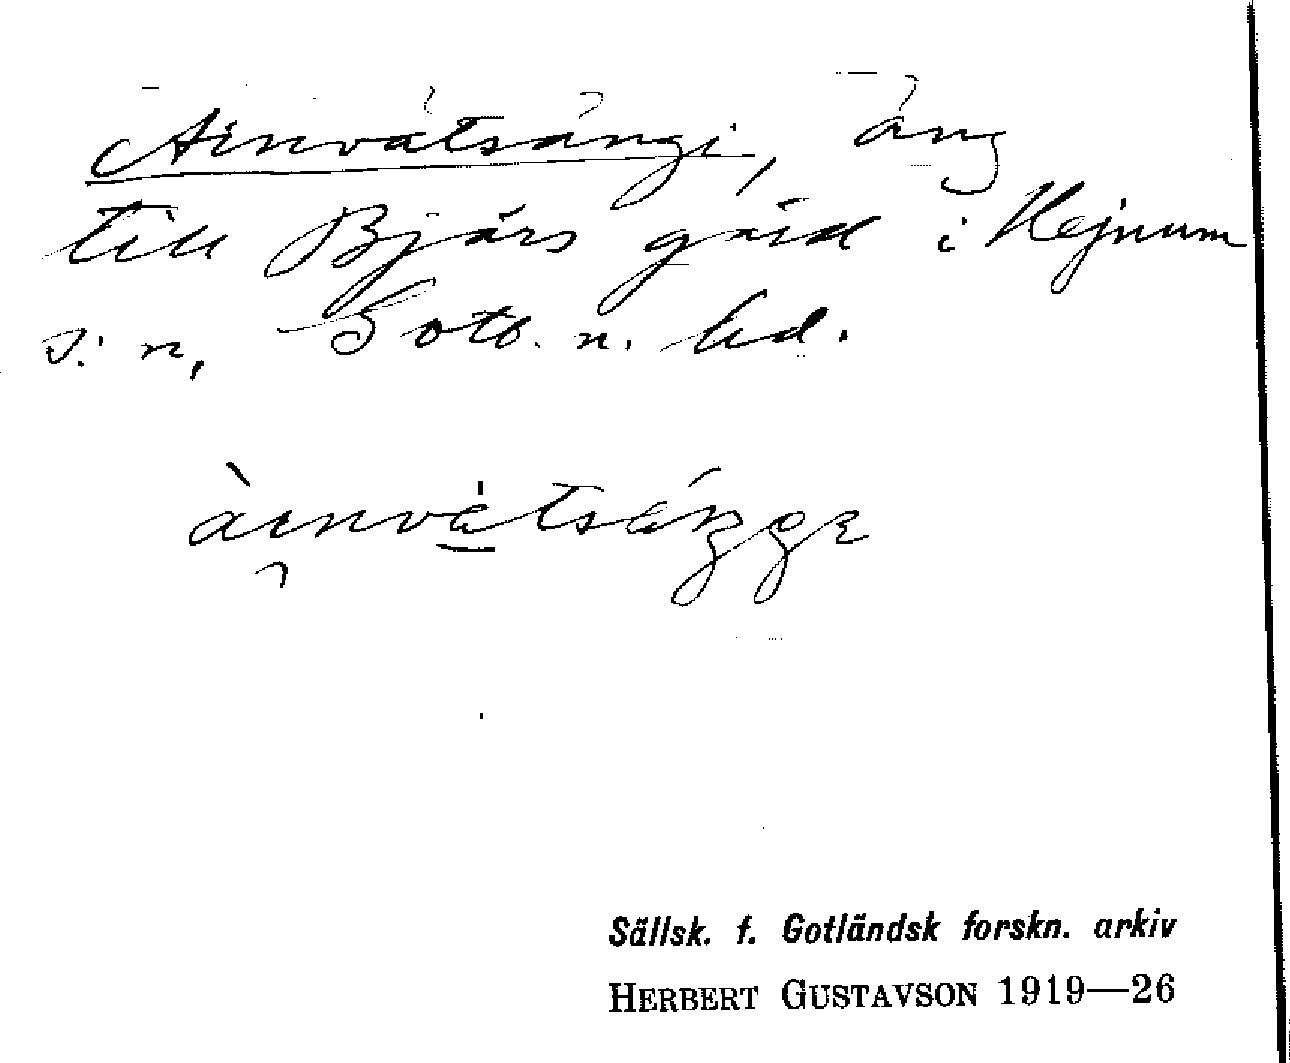 Ainvätsängi, äng
till Bjärs gård i Hejnum
s:n, Gotl. n. hd.
Sällsk. f. Gotländsk forskn. arkiv
HERBERT GUSTAVSON 1919—26